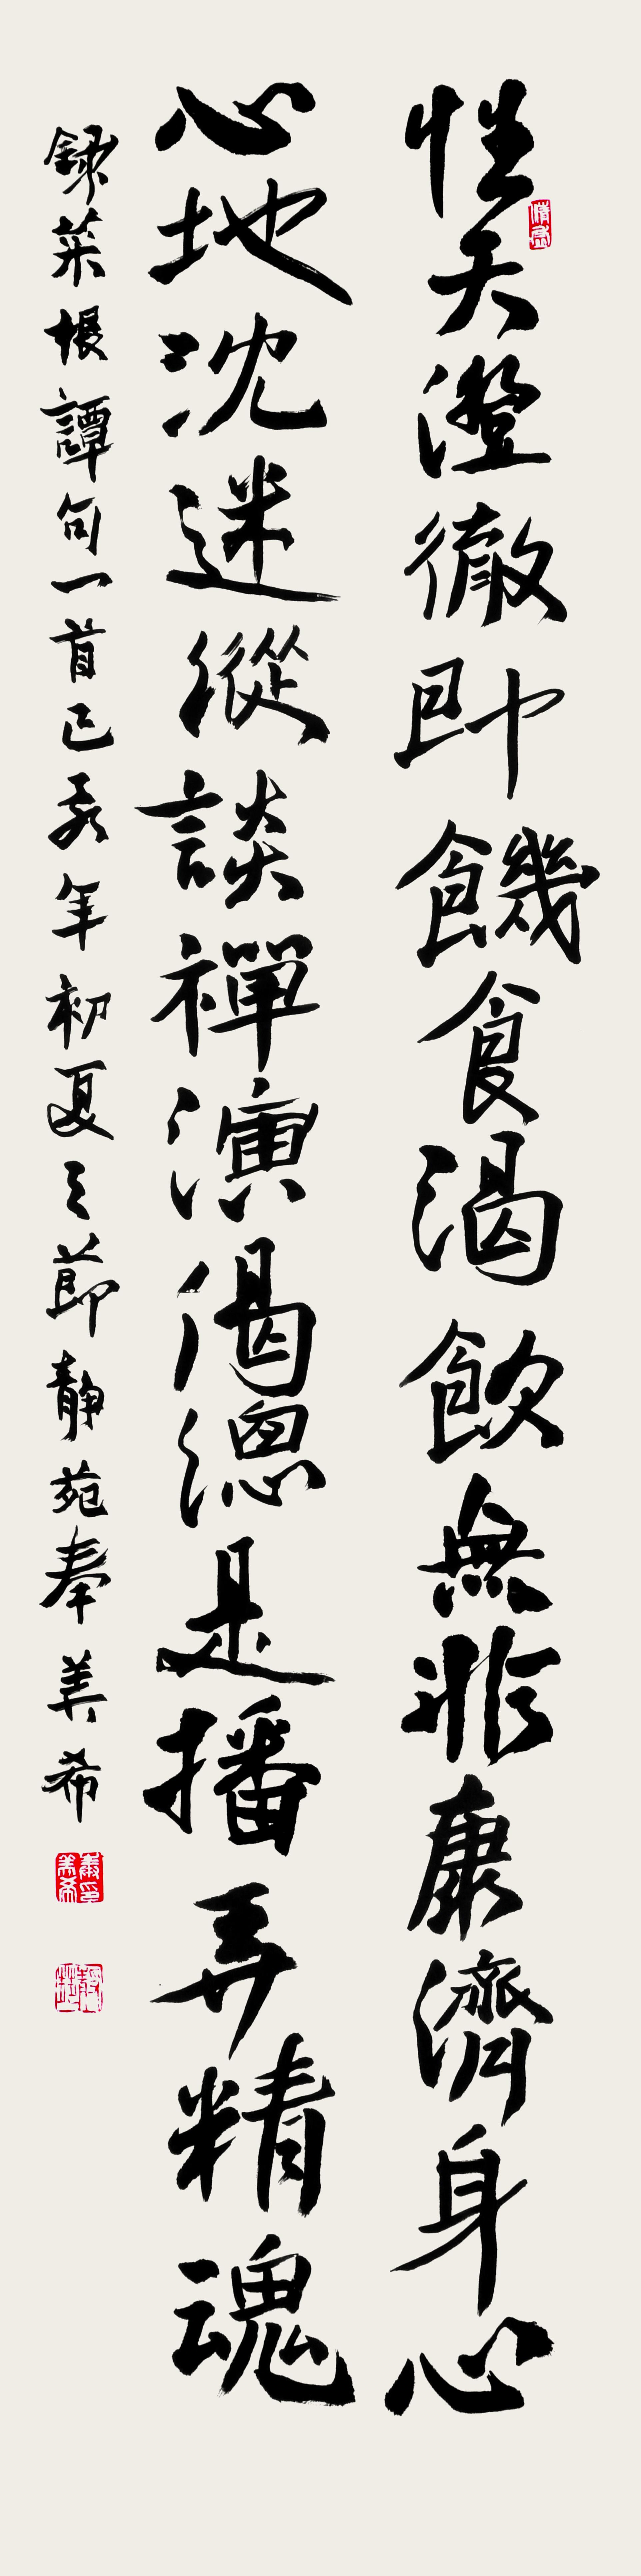 性天澄徹即饑食渴飲無非康濟身心
心地沈迷縱談禪演偈總是播弄精魂
錄菜根譚句一首己亥年初夏之節靜苑奉美希